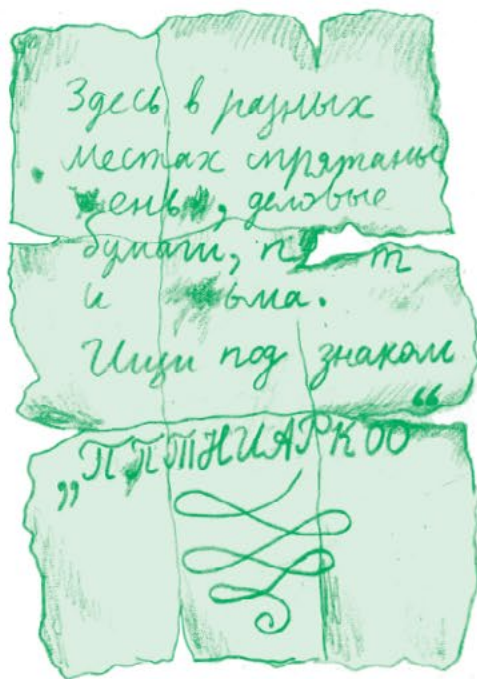 Здесь в разных
местах спрятаны
деловые
бумаги,
и
Ищи под знаком
„ППТНИАРКОО“